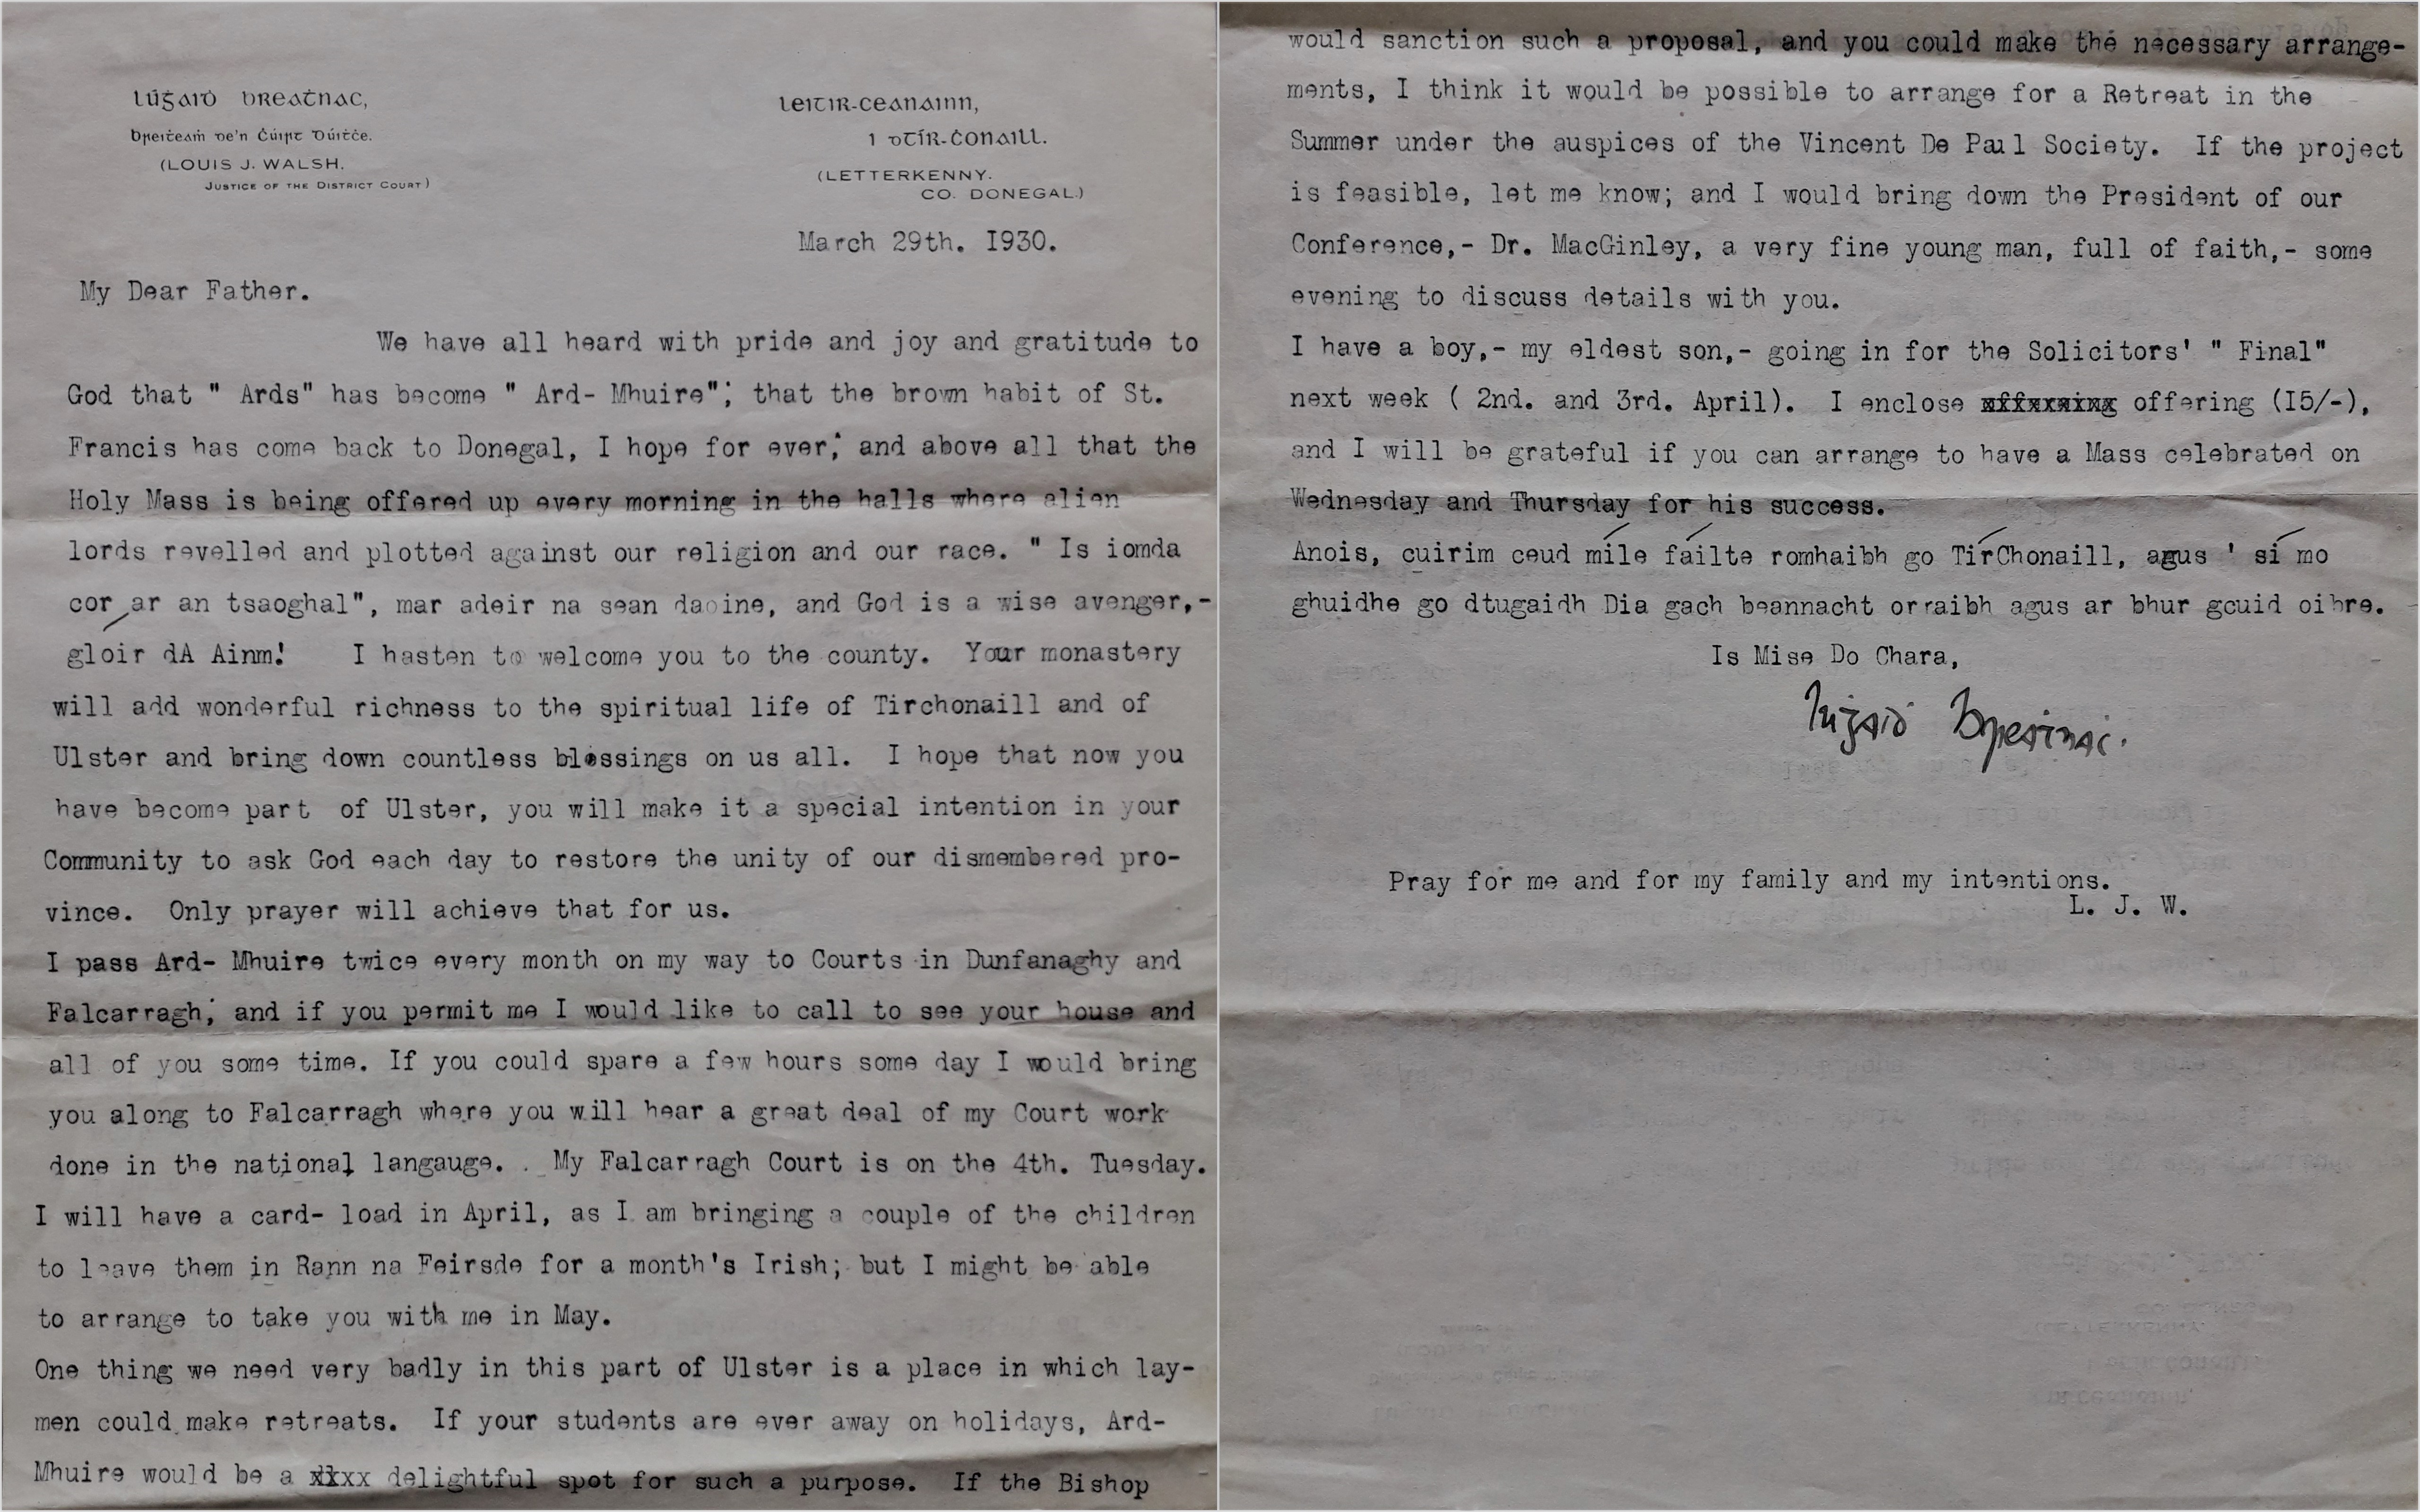 Lúġaiḋ Breaṫnac,
Breiṫeaṁ de'n Ċúirt Dúiṫċe.
(LOUIS J. WALSH.
JUSTICE OF THE DISTRICT COURT)
Leitir-Ceanainn,
i dTír-Ċonaill.
(LETTERKENNY.
CO. DONEGAL.)
March 29th. I930.
My Dear Father.
We have all heard with pride and joy and gratitude to
God that " Ards" has become " Ard- Mhuire"; that the brown habit of St.
Francis has come back to Donegal, I hope for ever; and above all that the
Holy Mass is being offered up every morning in the halls where alien
lords revelled and plotted against our religion and our race. " Is iomda
cor ar an tsaoghal", mar adeir na sean daoine, and God is a wise avenger,-
glóir dA Ainm! I hasten to welcome you to the county. Your monastery
will add wonderful richness to the spiritual life of Tirchonaill and of
Ulster and bring down countless blessings on us all. I hope that now you
have become part of Ulster, you will make it a special intention in your
Community to ask God each day to restore the unity of our dismembered pro-
vince. Only prayer will achieve that for us.
I pass Ard- Mhuire twice every month on my way to Courts in Dunfanaghy and
Falcarragh; and if you permit me I would like to call to see your house and
all of you some time. If you could spare a few hours some day I would bring
you along to Falcarragh where you will hear a great deal of my Court work
done in the national langauge. . My Falcarragh Court is on the 4th. Tuesday.
I will have a card- load in April, as I am bringing a couple of the children
to leave them in Rann na Feirsde for a month's Irish; but I might be able
to arrange to take you with me in May.
One thing we need very badly in this part of Ulster is a place in which lay-
men could make retreats. If your students are ever away on holidays, Ard-
Mhuire would be a delightful spot for such a purpose. If the Bishop
would sanction such a proposal, and you could make the necessary arrange-
ments, I think it would be possible to arrange for a Retreat in the
Summer under the auspices of the Vincent De Paul Society. If the project
is feasible, let me know; and I would bring down the President of our
Conference,- Dr. MacGinley, a very fine young man, full of faith,- some
evening to discuss details with you.
I have a boy,- my eldest son,- going in for the Solicitors' " Final"
next week ( 2nd. and 3rd. April). I enclose offering (I5/-),
and I will be grateful if you can arrange to have a Mass celebrated on
Wednesday and Thursday for his success.
Anois, cuirim ceud míle fáilte romhaibh go TírChonaill, agus ' sí mo
ghuidhe go dtugaidh Dia gach beannacht orraibh agus ar bhur gcuid oibre.
Is Mise Do Chara,
Lúġaiḋ Breaṫnac.
Pray for me and for my family and my intentions.
L. J. W.